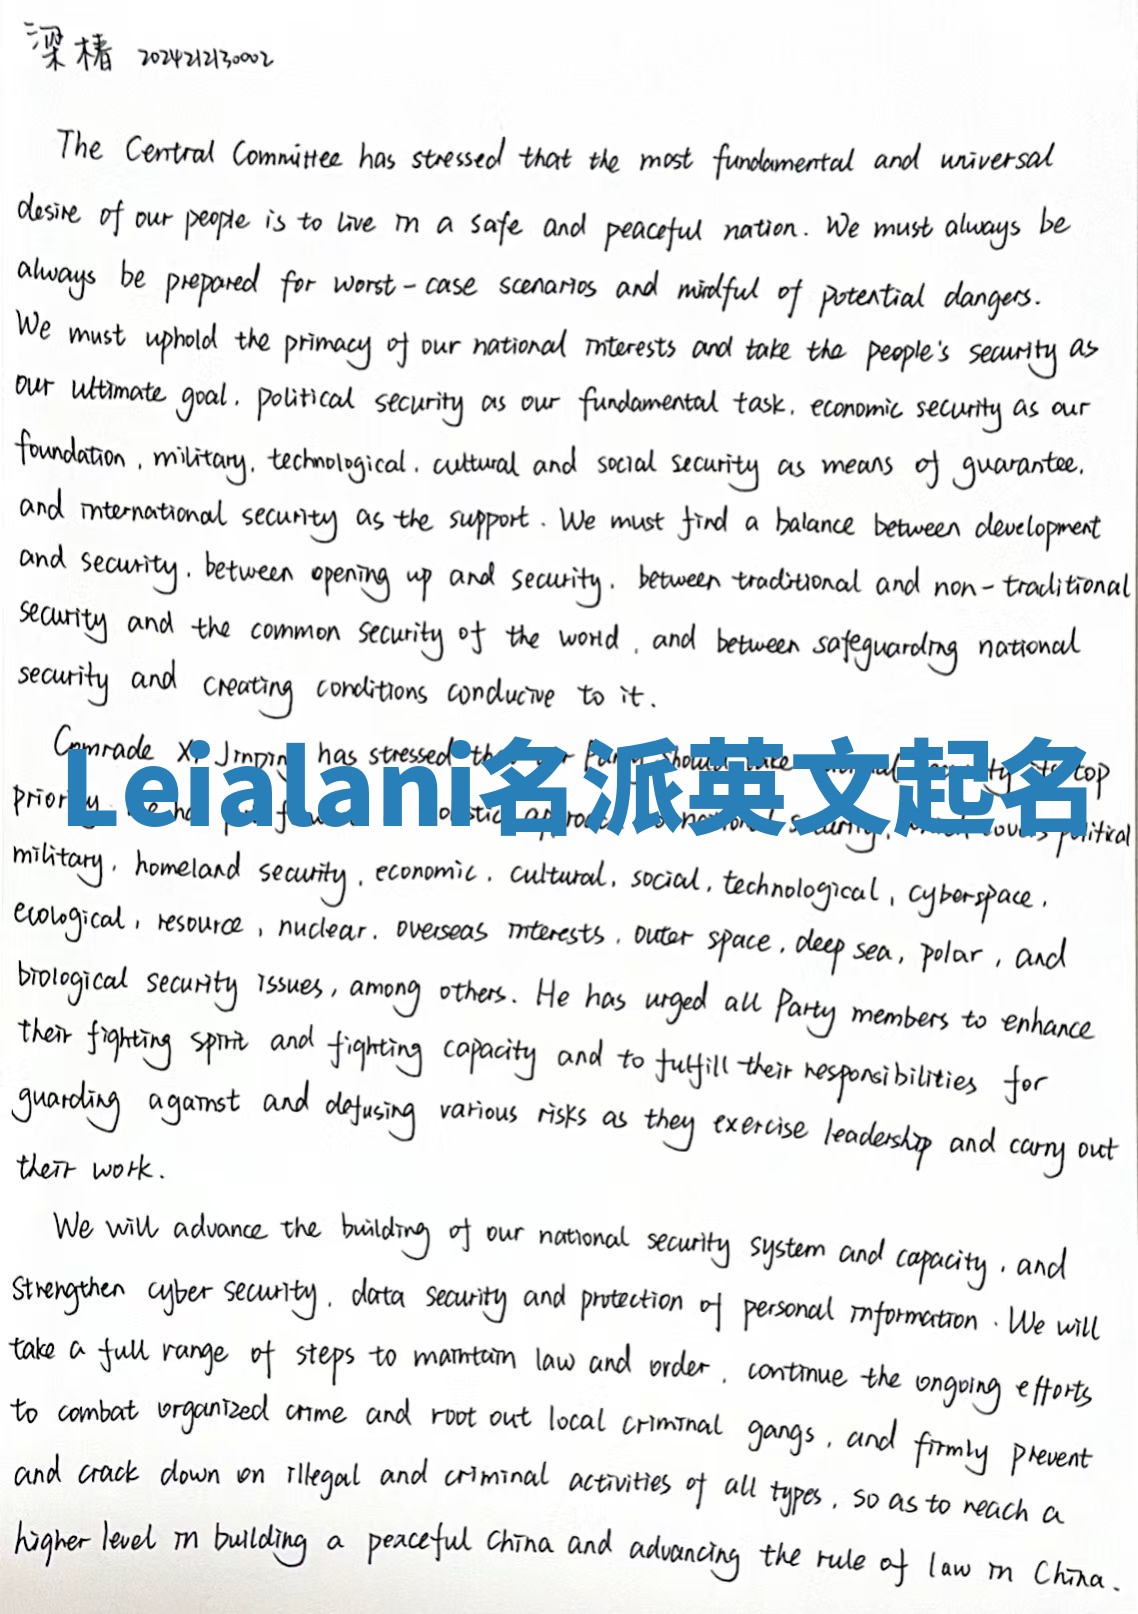 梁椿 2024212130002
The Central Committee has stressed that the most fundamental and universal
desire of our people is to live in a safe and peaceful nation. We must always be
always be prepared for worst-case scenarios and mindful of potential dangers.
We must uphold the primacy of our national interests and take the people's security as
our ultimate goal, political security as our fundamental task, economic security as our
foundation, military, technological, cultural and social security as means of guarantee,
and international security as the support. We must find a balance between development
and security, between opening up and security, between traditional and non-traditional
security and the common security of the world, and between safeguarding national
security and creating conditions conducive to it.
Comrade Xi Jinping has stressed should top
Leialani名派英文起名
priority political
military, homeland security, economic, cultural, social, technological, cyberspace,
ecological, resource, nuclear, overseas interests, outer space, deep sea, polar, and
biological security issues, among others. He has urged all Party members to enhance
their fighting spirit and fighting capacity and to fulfill their responsibilities for
guarding against and defusing various risks as they exercise leadership and carry out
their work.
We will advance the building of our national security system and capacity, and
strengthen cyber security, data security and protection of personal information. We will
take a full range of steps to maintain law and order, continue the ongoing efforts
to combat organized crime and root out local criminal gangs, and firmly prevent
and crack down on illegal and criminal activities of all types, so as to reach a
higher level in building a peaceful China and advancing the rule of law in China.